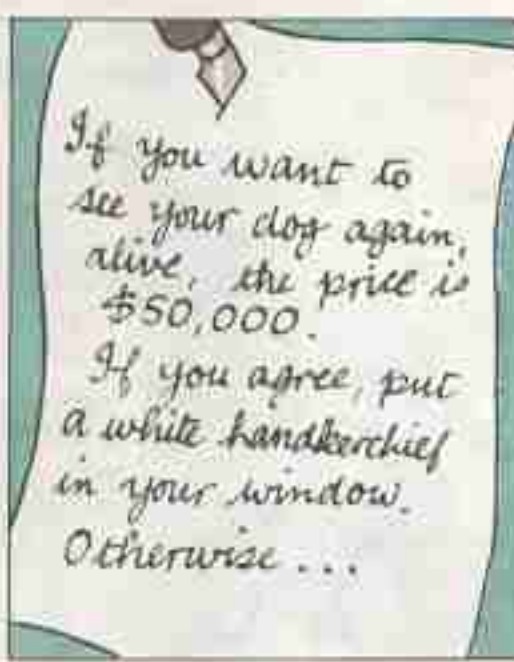 If you want to
see your dog again,
alive, the price is
$50,000.
If you agree, put
a white handkerchief
in your window.
Otherwise ...